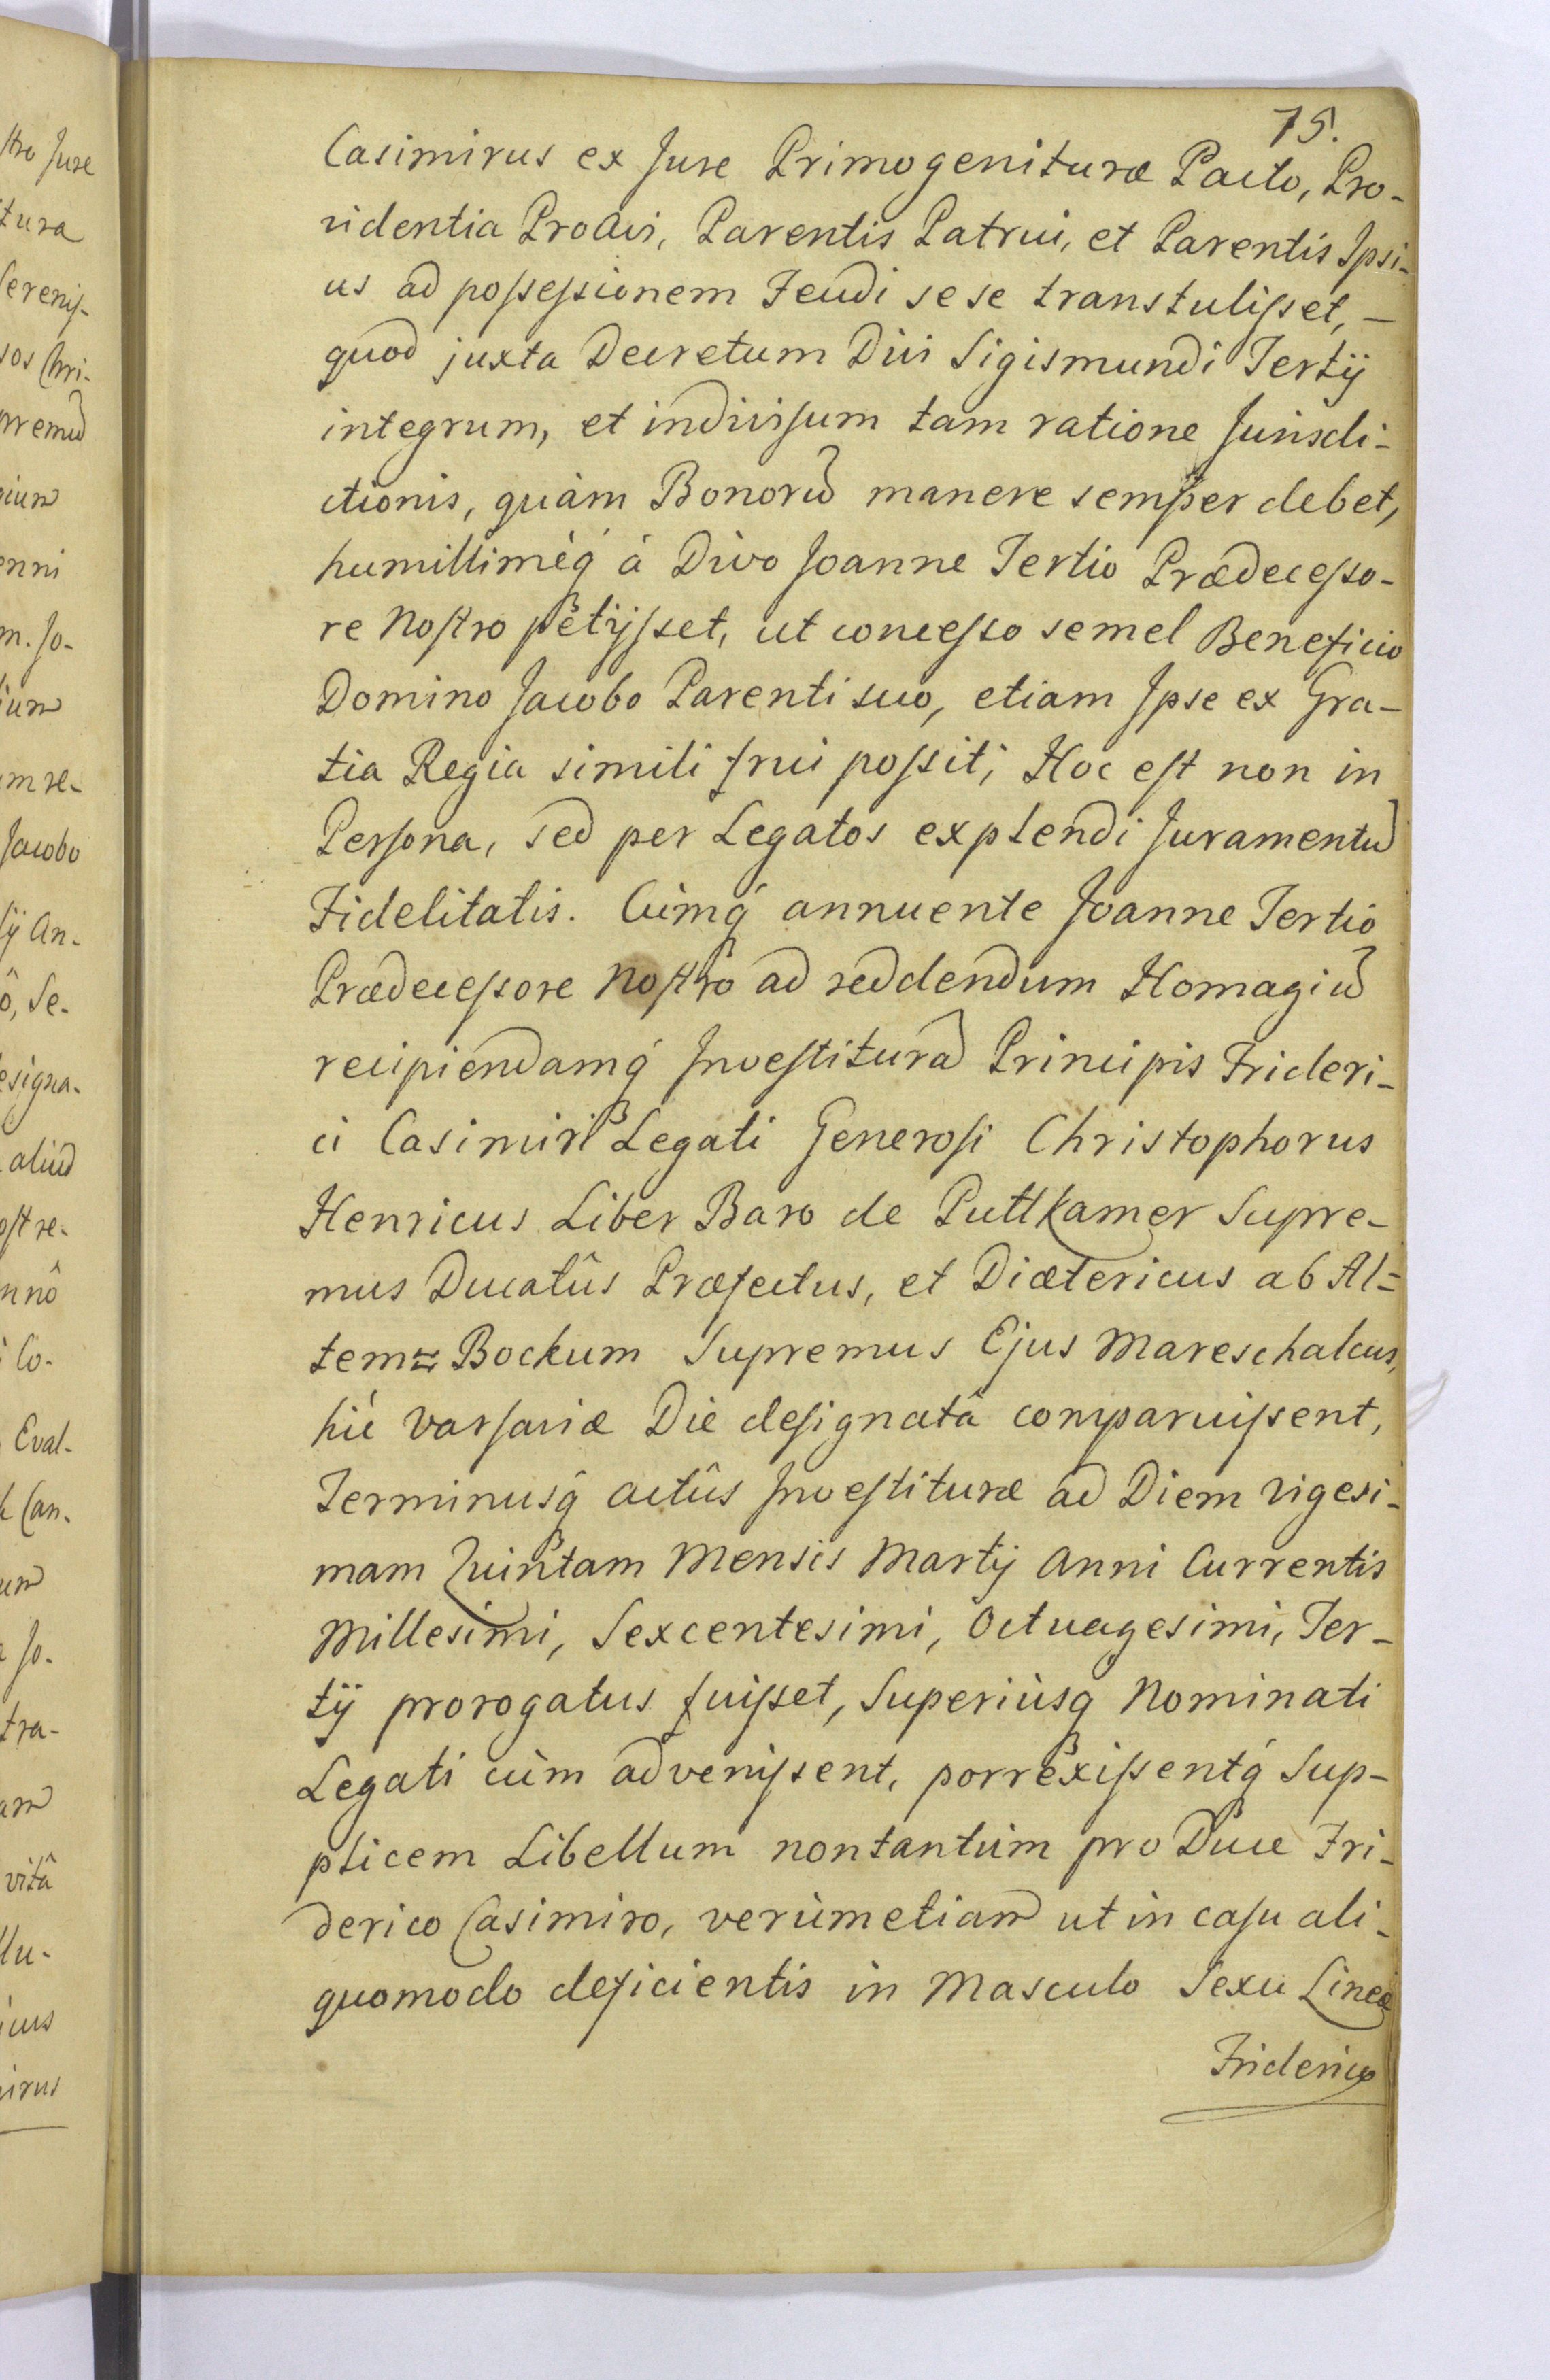 75.
Casimirus ex Jure Primogenituræ Pacto, Pro-
videntia Proavi, Parentis Patrui, et Parentis Ipsi-
us ad possessionem Feudi sese transtulisset, –
quod juxta Decretum Divi Sigismundi Tertÿ
integrum, et indivisum tam ratione Jurisdi-
ctionis, quàm Bonorũ manere semper debet,
humillimèq́ à Divo Joanne Tertio Prædecesso-
re Nostro petÿsset, ut concesso semel Beneficio
Domino Jacobo Parenti suo, etiam Ipse ex Gra-
tia Regia simili frui possit; Hoc est non in
Persona, sed per Legatos explendi Juramentũ
Fidelitatis. Cùmq́ annuente Joanne Tertio
Prædecessore Nostro ad reddendum Homagiũ
recipiendamq́ Investiturã Principis Frideri-
ci Casimiri Legati Generosi Christophorus
Henricus Liber Baro de Puttkamer Supre-
mus Ducatûs Præfectus, et Diætericus ab Al=
tem= Bockum Supremus Ejus Mareschalcus,
hìc Varsaviæ Die designatâ comparuissent,
Terminusq́ actûs Investituræ ad Diem vigesi-
mam Quintam Mensis Martÿ Anni Currentis
Millesimi, Sexcentesimi, Octuagesimi, Ter-
tÿ prorogatus fuisset, Superiùsq Nominati
Legati cùm advenissent, porrexissentq́ Sup-
plicem Libellum nontantùm pro Duce Fri-
derico Casimiro, verùmetiam ut in casu ali-
quomodo deficientis in Masculo Sexu Lineæ
Friderico
stro Jure
itura
Serenis-
sos Chri-
premũ
gium
enni
m. Jo-
ium
um re-
Jacobo
tÿ An-
ô, Se-
esigna-
aliud
ost re-
nnô
i Co-
Eval-
k Can-
um
a Jo-
tra-
am
vitâ
llu-
icus
irus